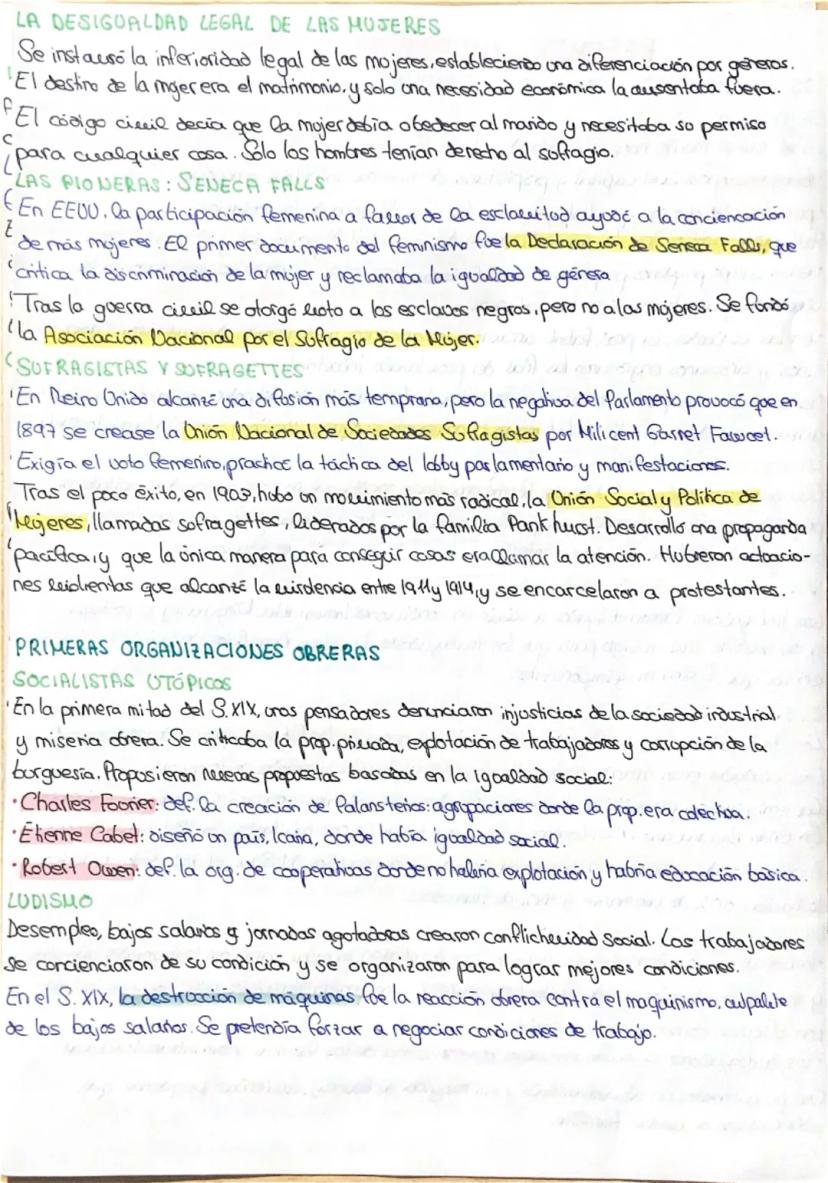 LA DESIGUALDAD LEGAL DE LAS MUJERES
Se instauró la inferioridad legal de las mujeres, estableciendo una diferenciación por géneros.
El destino de la mujer era el matrimonio, y solo una necesidad económica la ausentaba fuera.
El código civil decía que la mujer debía obedecer al marido y necesitaba su permiso
para cualquier cosa. Solo los hombres tenían derecho al sufragio.
LAS PIONERAS: SENECA FALLS
En EEUU, la participación femenina a favor de la esclavitud ayudó a la conciencación
de más mujeres. El primer documento del feminismo fue la Declaración de Seneca Falls, que
critica la discriminación de la mujer y reclamaba la igualdad de género
Tras la guerra civil se otorgó voto a los esclavos negros, pero no a las mujeres. Se fundó
la Asociación Nacional por el Sufragio de la Mujer.
SUFRAGISTAS Y SUFRAGETTES
En Reino Unido alcanzó una difusión más temprana, pero la negativa del Parlamento provocó que en
1897 se crease la Unión Nacional de Sociedades Sufragistas por Milicent Garret Fawcet.
Exigía el voto femenino, practicó la táctica del lobby parlamentario y manifestaciones.
Tras el poco éxito, en 1903, hubo un movimiento más radical: la Unión Social y Política de
Mujeres, llamadas sufragettes, liderados por la familia Pankhurst. Desarrolló una propaganda
pacífica, y que la única manera para conseguir cosas era llamar la atención. Hubieron actuacio-
nes violentas que alcanzó la virulencia entre 1911 y 1914, y se encarcelaron a protestantes.
PRIMERAS ORGANIZACIONES OBRERAS
SOCIALISTAS UTÓPICOS
En la primera mitad del S.XIX, unos pensadores denunciaron injusticias de la sociedad industrial
y miseria obrera. Se criticaba la prop. privada, explotación de trabajadores y corrupción de la
burguesía. Proposieron nuevas propuestas basadas en la igualdad social:
· Charles Fourier: def. la creación de falansterios: agrupaciones donde la prop. era colectiva.
· Étienne Cabet: diseñó un país, Icaria, donde había igualdad social.
· Robert Owen: def. la org. de cooperativas donde no habría explotación y habría educación básica.
LUDISMO
Desempleo, bajos salarios y jornadas agotadoras crearon conflictividad social. Los trabajadores
se concienciaron de su condición y se organizaron para lograr mejores condiciones.
En el S. XIX, la destrucción de máquinas, fue la reacción obrera contra el maquinismo, culpable
de los bajos salarios. Se pretendía forzar a negociar condiciones de trabajo.